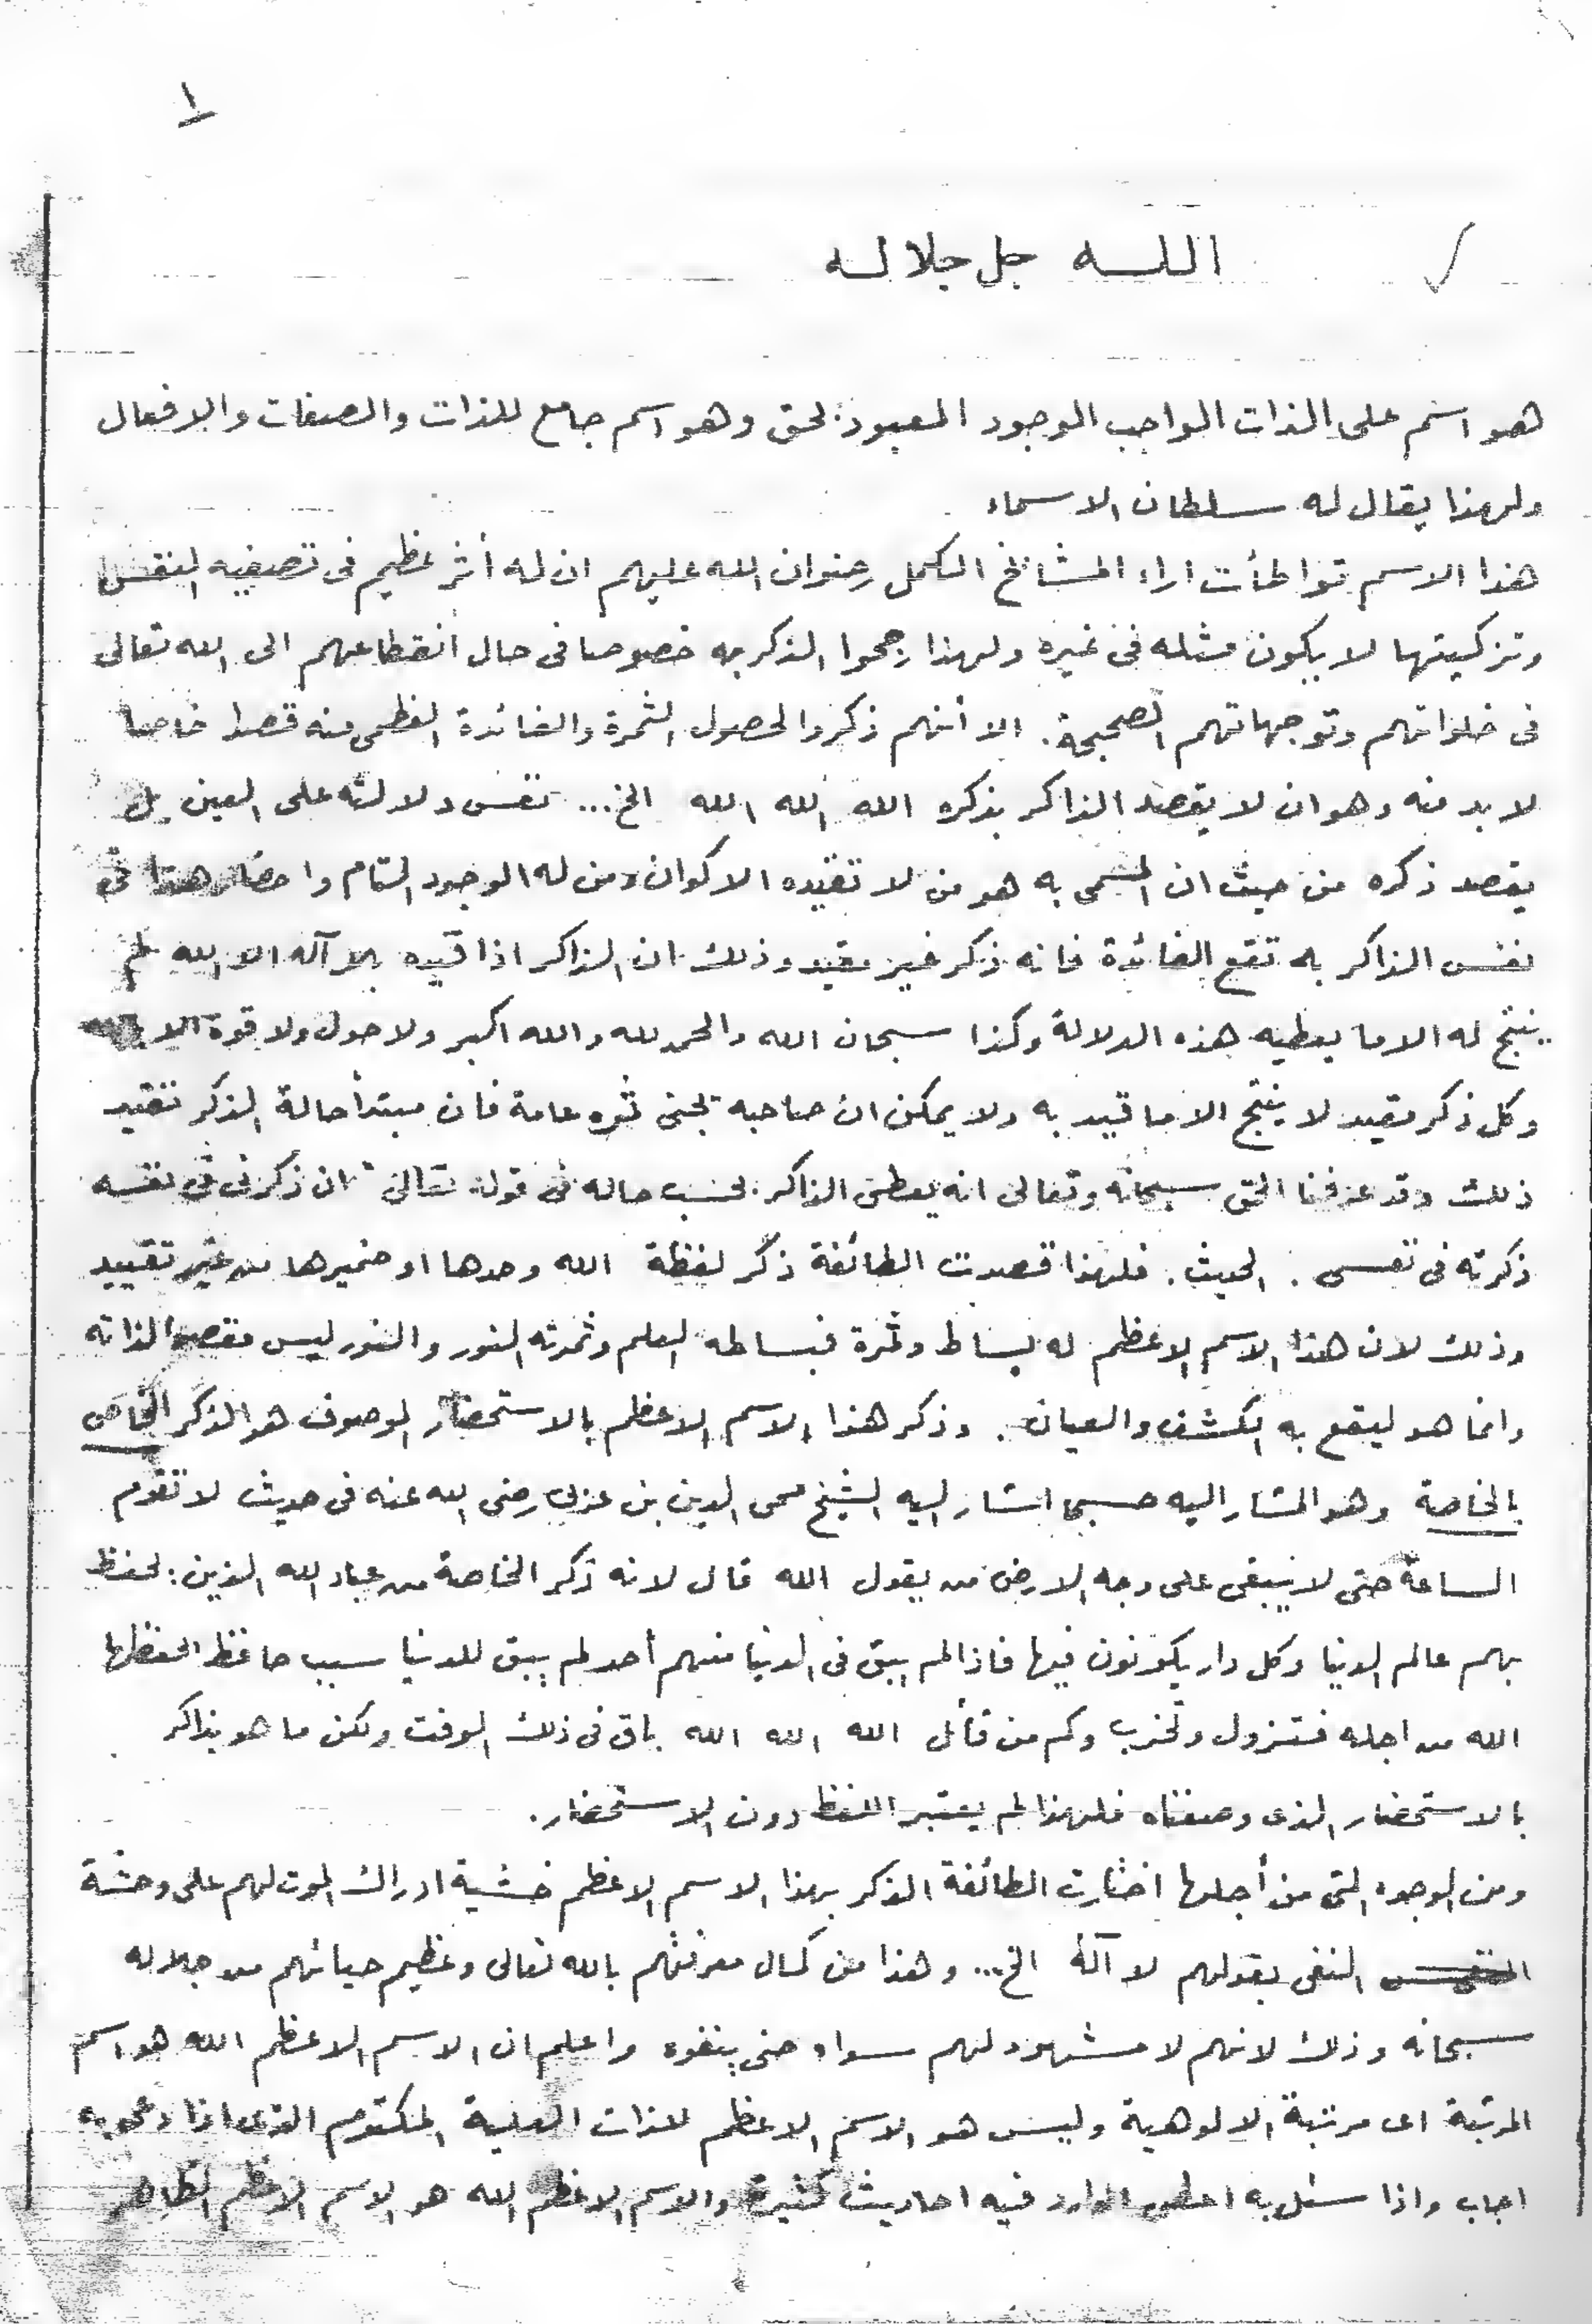 ١
الله جل جلاله
هو اسم على الذات الواجب الوجود المعبود بحق وهو اسم جامع للذات والصفات والافعال
ولهذا يقال له سلطان الاسماء
هذا الاسم تواطأت اراء المشائخ الكمل رضوان الله عليهم ان له أثر عظيم فى تصفيه النفس
وتزكيتها لا يكون مثله فى غيره ولهذا رجحوا الذكر به خصوصا فى حال انقطاعهم الى الله تعالى
فى خلواتهم وتوجهاتهم الصحيحة. الا أنهم ذكروا لحصول الثمرة والفائدة العظمى منه قصدا خاصا
لا بد منه وهو ان لا يقصد الذاكر بذكره الله الله الله الخ... نفس دلالته على العين بل
يقصد ذكره من حيث ان المسمى به هو من لا تقيده الاكوان ومن له الوجود التام واحضار هذا فى
نفس الذاكر به تقع الفائدة فانه ذكر غير مقيد وذلك ان الذاكر اذا قيده بلا آله الا الله لم
ينتج له الا ما يعطيه هذه الدلالة وكذا سبحان الله والحمد لله والله اكبر ولا حول ولا قوة الا
وكل ذكر مقيد لا ينتج الا ما قيد به ولا يمكن ان صاحبه يجنى ثمره عامة فان مبتدأ حالة الذكر تقيد
ذلك وقد عرفنا الحق سبحانه وتعالى انه يعطى الذاكر بحسب حاله فى قوله تعالى " ان ذكرنى فى نفسه
ذكرته فى نفسى . الحيث . فلهذا قصدت الطائفة ذكر لفظة الله وحدها او ضميرها من غير تقييد
وذلك لان هذا الاسم الاعظم له بساط وثمرة فبساطه العلم وثمرته النور والنور ليس مقصودا لذاته
وانما هو ليقع به الكشف والعيان . وذكر هذا الاسم الاعظم بالاستحضار الموصوف هو الذكر الخاص
بالخاصة وهو المشار اليه حسبما اشار اليه الشيخ محى الدين بن عربى رضى الله عنه فى حديث لا تقوم
الساعة حتى لا يبقى على وجه الارض من يقول الله قال لانه ذكر الخاصة من عباد الله الذين يحفظ
بهم عالم الدنيا وكل دار يكونون فيها فاذا لم يبق فى الدنيا منهم أحد لم يبق للدنيا سبب حافظ لحفظها
الله من اجله فتزول وتخرب وكم من قائل الله الله الله باق فى ذلك الوقت ولكن ما هو بذاكر
بالاستحضار الذى وصفناه فلهذا لم يعتبر اللفظ دون الاستحضار.
ومن الوجوه التى من أجلها اختارت الطائفة الذكر بهذا الاسم الاعظم خشية ادراك الموت لهم على وحشة
النفى بقولهم لا آله الخ... وهذا من كمال معرفتهم بالله تعالى وعظيم حيائهم من جلاله
سبحانه وذلك لانهم لا مشهود لهم سواه حتى ينفوه واعلم ان الاسم الاعظم الله هو اسم
المرتبة اى مرتبة الالوهية وليس هو الاسم الاعظم للذات العلية المكتوم الذى اذا دعى به
اجاب واذا سئل به اعطى الوارد فيه احاديث كثيرة والاسم الاعظم الله هو الاسم الاعظم الظاهر